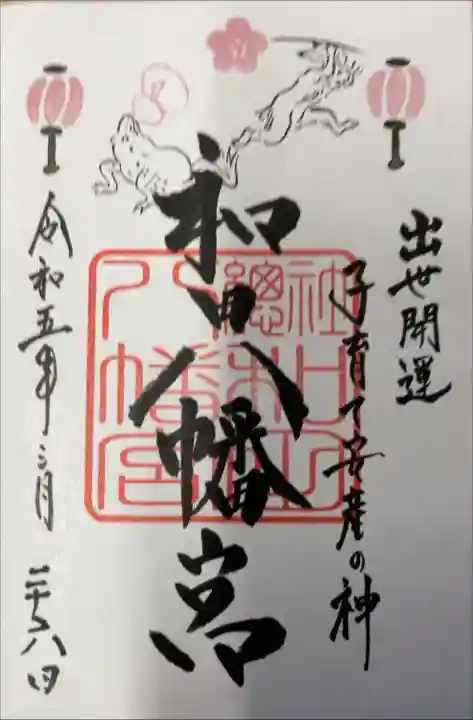 出世開運
子育て安産の神
和田八幡宮
總社
和田
八幡宮
令和五年三月二十八日